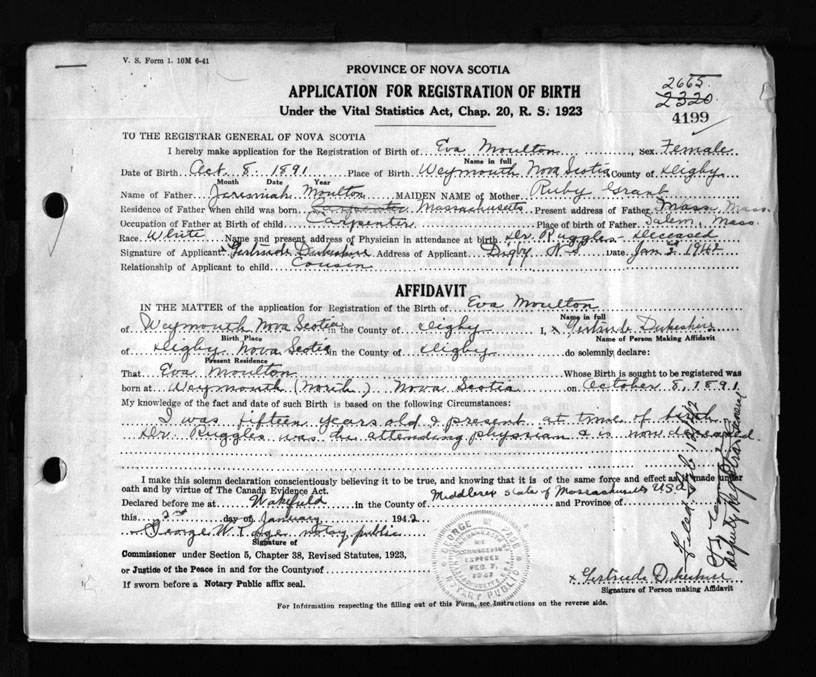 V. S. Form 1. 10M 6-41
PROVINCE OF NOVA SCOTIA
APPLICATION FOR REGISTRATION OF BIRTH
Under the Vital Statistics Act, Chap. 20, R. S. 1923
2665
2320
4199
TO THE REGISTRAR GENERAL OF NOVA SCOTIA
I hereby make application for the Registration of Birth of Eva Moulton, Sex Female
Name in full
Date of Birth Oct 8 1891 Place of Birth Weymouth Nova Scotia County of Digby
Month Date Year
Name of Father Jeremiah Moulton MAIDEN NAME of Mother Ruby Grant
Residence of Father when child was born Massachusetts Present address of Father Mass
Occupation of Father at Birth of child Carpenter Place of birth of Father Salem, Mass
Race White Name and present address of Physician in attendance at birth Dr. Ruggles - deceased
Signature of Applicant x Gertrude Dukeshire Address of Applicant Digby N S Date Jan 2nd 1942
Relationship of Applicant to child Cousin
AFFIDAVIT
IN THE MATTER of the application for Registration of the Birth of Eva Moulton
Name in full
of Weymouth Nova Scotia in the County of Digby I, x Gertrude Dukeshire
Birth Place Name of Person Making Affidavit
of Digby Nova Scotia in the County of Digby do solemnly declare:
Present Residence
That Eva Moulton Whose Birth is sought to be registered was
born at Weymouth (North) Nova Scotia on October 8, 1891
My knowledge of the fact and date of such Birth is based on the following Circumstances:
I was fifteen years old & present at time of birth
Dr. Ruggles was the attending physian & is now deceased
I make this solemn declaration conscientiously believing it to be true, and knowing that it is of the same force and effect as if made under
oath and by virtue of The Canada Evidence Act.
Declared before me at Wakefield in the County of Middlesex State of Massachusetts USA and Province of
this 2nd day of January 1942
George W. notary public
Signature of
Commissioner under Section 5, Chapter 38, Revised Statutes, 1923,
or Justice of the Peace in and for the County of
If sworn before a Notary Public affix seal.
GEORGE W.
COMMISSION
EXPIRES
FEB. 7,
NOTARY PUBLIC
Filed Feb 12/42
Deputy Registrar General
x Gertrude Dukeshire
Signature of Person making Affidavit
For Information respecting the filling out of this Form, see Instructions on the reverse side.